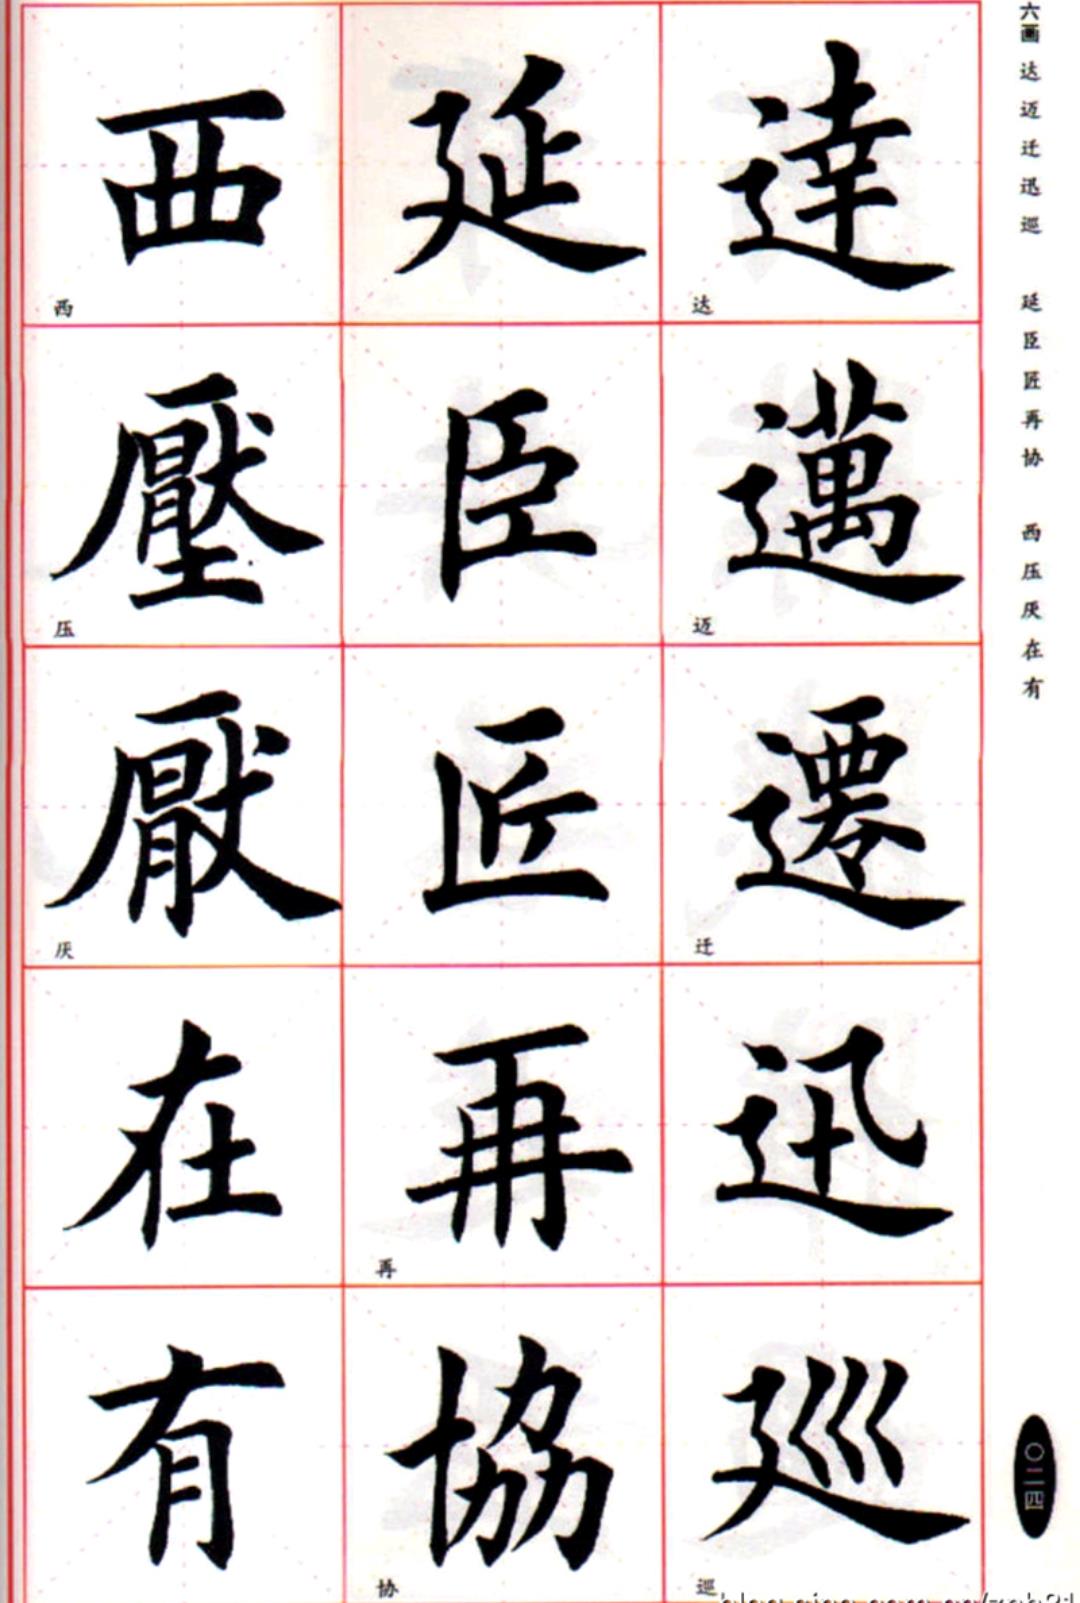 六画 达迈迁迅巡 延臣匠再协 西压厌在有
達
达
邁
迈
遷
迁
迅
巡
巡
延
臣
匠
再
再
協
协
西
西
壓
压
厭
厌
在
有
〇二四